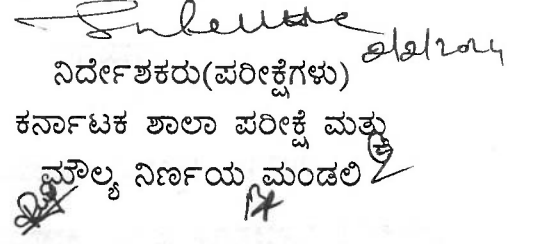 2/2/2024
ನಿರ್ದೇಶಕರು(ಪರೀಕ್ಷೆಗಳು)
ಕರ್ನಾಟಕ ಶಾಲಾ ಪರೀಕ್ಷೆ ಮತ್ತು
ಮೌಲ್ಯ ನಿರ್ಣಯ ಮಂಡಲಿ